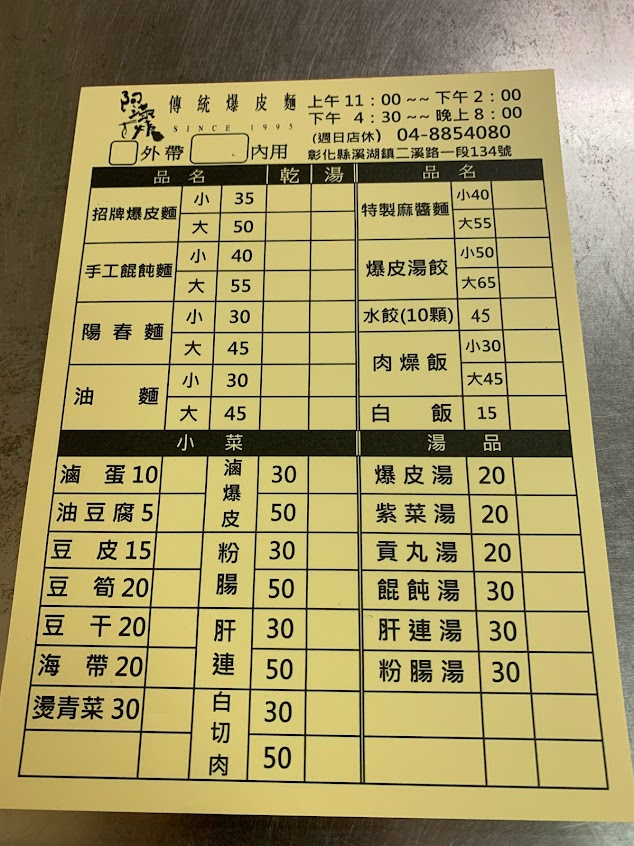 傳統爆皮麵
SINCE 1995
上午 11：00 ~~ 下午 2：00
下午 4：30 ~~ 晚上 8：00
(週日店休) 04-8854080
外帶 內用 彰化縣溪湖鎮二溪路一段134號
品名 乾 湯
招牌爆皮麵 小 35
大 50
手工餛飩麵 小 40
大 55
陽春麵 小 30
大 45
油麵 小 30
大 45
品名
特製麻醬麵 小40
大55
爆皮湯餃 小50
大65
水餃(10顆) 45
肉燥飯 小30
大45
白飯 15
小菜
滷蛋10
油豆腐5
豆皮15
豆筍20
豆干20
海帶20
燙青菜30
滷爆皮 30
50
粉腸 30
50
肝連 30
50
白切肉 30
50
湯品
爆皮湯 20
紫菜湯 20
貢丸湯 20
餛飩湯 30
肝連湯 30
粉腸湯 30